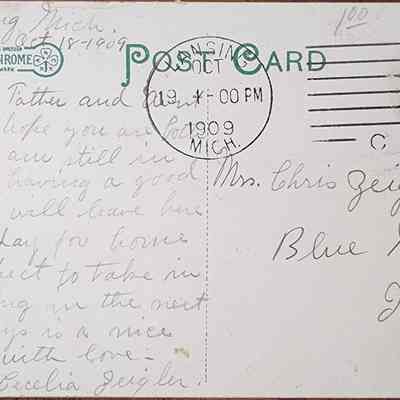 g Mich.
Oct 18-1909
1.00
CHROME
POST CARD
LANSING
OCT
19 1-00 PM
1909
MICH.
C
Father and Aunt
hope you are both
am still in
having a good
will leave here
day for home
ect to take in
ng in the next
ys is a nice
with love-
Cecelia Zeigler.
Mrs. Chris Zeig
Blue